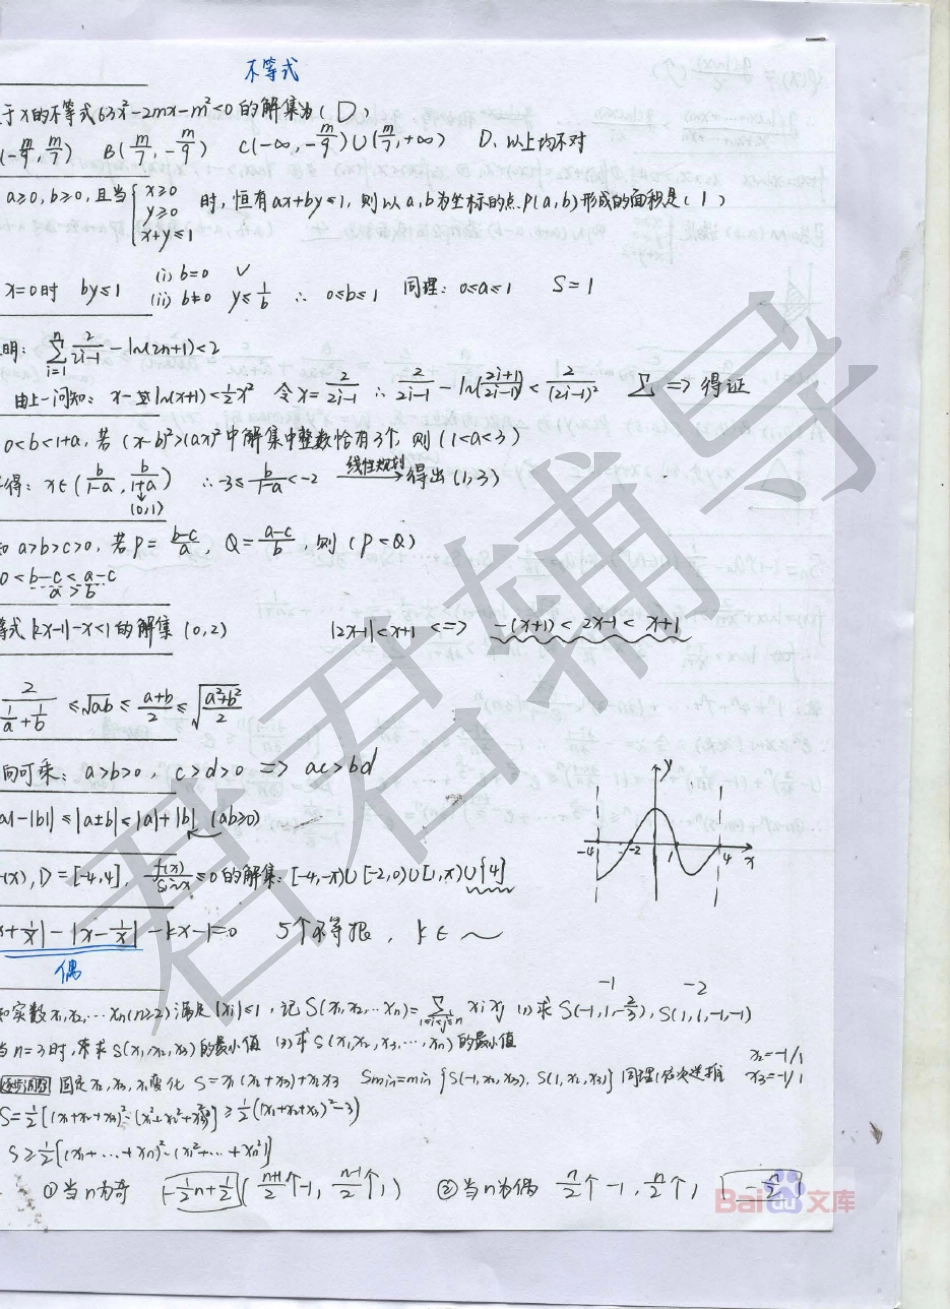 不等式
于x的不等式63x²-2mx-m²<0的解集为(D)
(-m/9, m/7) B(m/7, -m/9) C(-∞, -m/9)∪(m/7, +∞) D、以上均不对
a≥0, b≥0, 且当{x≥0 y≥0 x+y≤1 时, 恒有ax+by≤1, 则以a,b为坐标的点P(a,b)形成的面积是(1)
x=0时 by≤1 (i) b=0 √ (ii) b≠0 y≤1/b ∴ 0≤b≤1 同理: 0≤a≤1 S=1
明: Σ(i=1→n) 2/(2i-1) - ln(2n+1)<2
由上一问知: x- ln(x+1)<½x² 令x=2/(2i-1) ∴ 2/(2i-1) - ln((2i+1)/(2i-1)) < 2/(2i-1)² Σ => 得证
0<b<1+a, 若(x-b)²>(ax)²中解集中整数恰有3个, 则(1<a<3)
得: x∈(b/(1-a), b/(1+a)) ∴ -3≤b/(1-a)<-2 线性规划→ 得出(1,3)
(0,1)
知a>b>c>0, 若P=(b-c)/a, Q=(a-c)/b, 则(P<Q)
0<b-c<a-c
a>b
等式|2x-1|-x<1的解集(0,2) |2x-1|<x+1 <=> -(x+1)<2x-1<x+1
2/(1/a+1/b) ≤√ab≤(a+b)/2≤√((a²+b²)/2)
向可乘: a>b>0, c>d>0 => ac>bd
|a|-|b|≤|a±b|≤|a|+|b| (ab≥0)
y
-4 -2 1 4 x
f(x), D=[-4,4], f(x)/sinx≤0的解集: [-4,-π)∪[-2,0)∪[1,π)∪{4}
x+1/x|-|x-1/x|-kx-1=0 5个不等根, k∈~
偶
-1 -2
知实数x₁,x₂,…xₙ(n≥2)满足|xᵢ|≤1, 记S(x₁,x₂,…xₙ)=Σ(1≤i<j≤n) xᵢxⱼ (1)求S(-1,1,-2/3), S(1,1,-1,-1)
当n=3时, 求S(x₁,x₂,x₃)的最小值 (3)求S(x₁,x₂,x₃,…,xₙ)的最小值
固定x₂,x₃, x₁变化 S=x₁(x₂+x₃)+x₂x₃ Smin=min{S(-1,x₂,x₃), S(1,x₂,x₃)} 同理 依次递推 x₂=-1/1 x₃=-1/1
S=½[(x₁+x₂+x₃)²-(x₁²+x₂²+x₃²)]≥½((x₁+x₂+x₃)²-3)
S≥½[(x₁+…+xₙ)²-(x₁²+…+xₙ²)]
①当n为奇 (-½n+½)((n+1)/2个-1, (n-1)/2个1) ②当n为偶 n/2个-1, n/2个1 (-n/2)
君君辅导
Bai du 文库